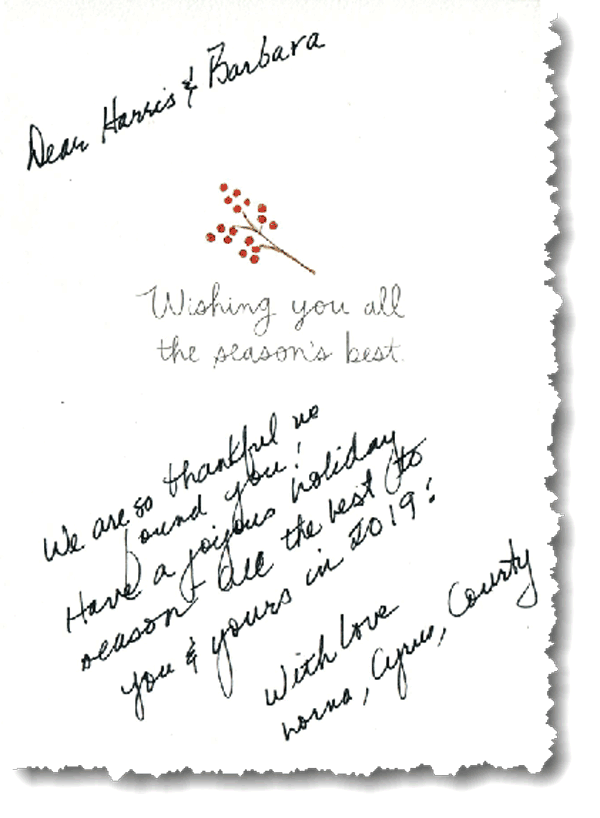 Dear Harris & Barbara
Wishing you all
the season's best.
We are so thankful we
found you!
Have a joyous holiday
season & all the best to
you & yours in 2019!
With Love
Lorna, Cyrus, County